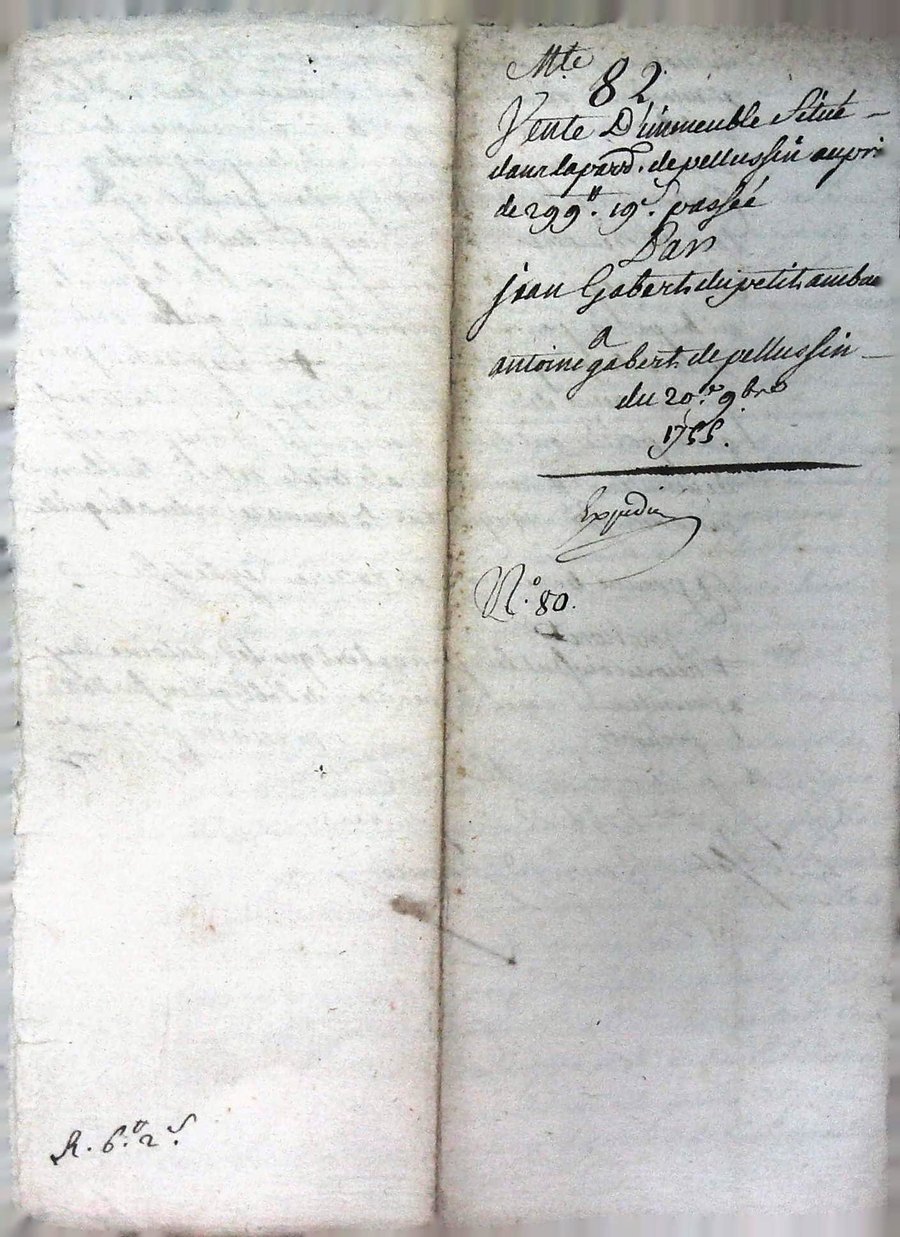 Mte
82
Vente D'immeuble Situé
dans la parr. de pellussin au pri
de 299# 19s. passéé
Par
jean Gabert du petit ambau
a
antoine gabert de pellussin
du 20e 9bre
1755.
Expedié
N.° 80.
R. 6# 2s.